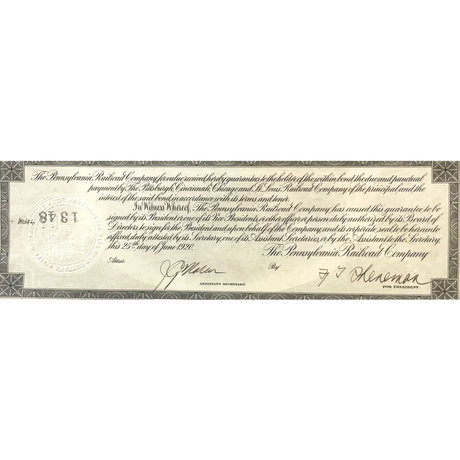 The Pennsylvania Railroad Company for value received hereby guarantees to the holder of the within bond the due and punctual
payment by The Pittsburgh, Cincinnati, Chicago and St. Louis Railroad Company of the principal and the
interest of the said bond in accordance with its terms and tenor.
In Witness Whereof, The Pennsylvania Railroad Company has caused this guarantee to be
signed by its President or one of its Vice Presidents, or other officer or person duly authorized by its Board of
Directors to sign for the President and upon behalf of the Company, and its corporate seal to be hereunto
affixed, duly attested by its Secretary, one of its Assistant Secretaries, or by the Assistant to the Secretary,
this 25th day of June 1920.
The Pennsylvania Railroad Company
Attest
By
ASSISTANT SECRETARY.
FOR PRESIDENT.
1348